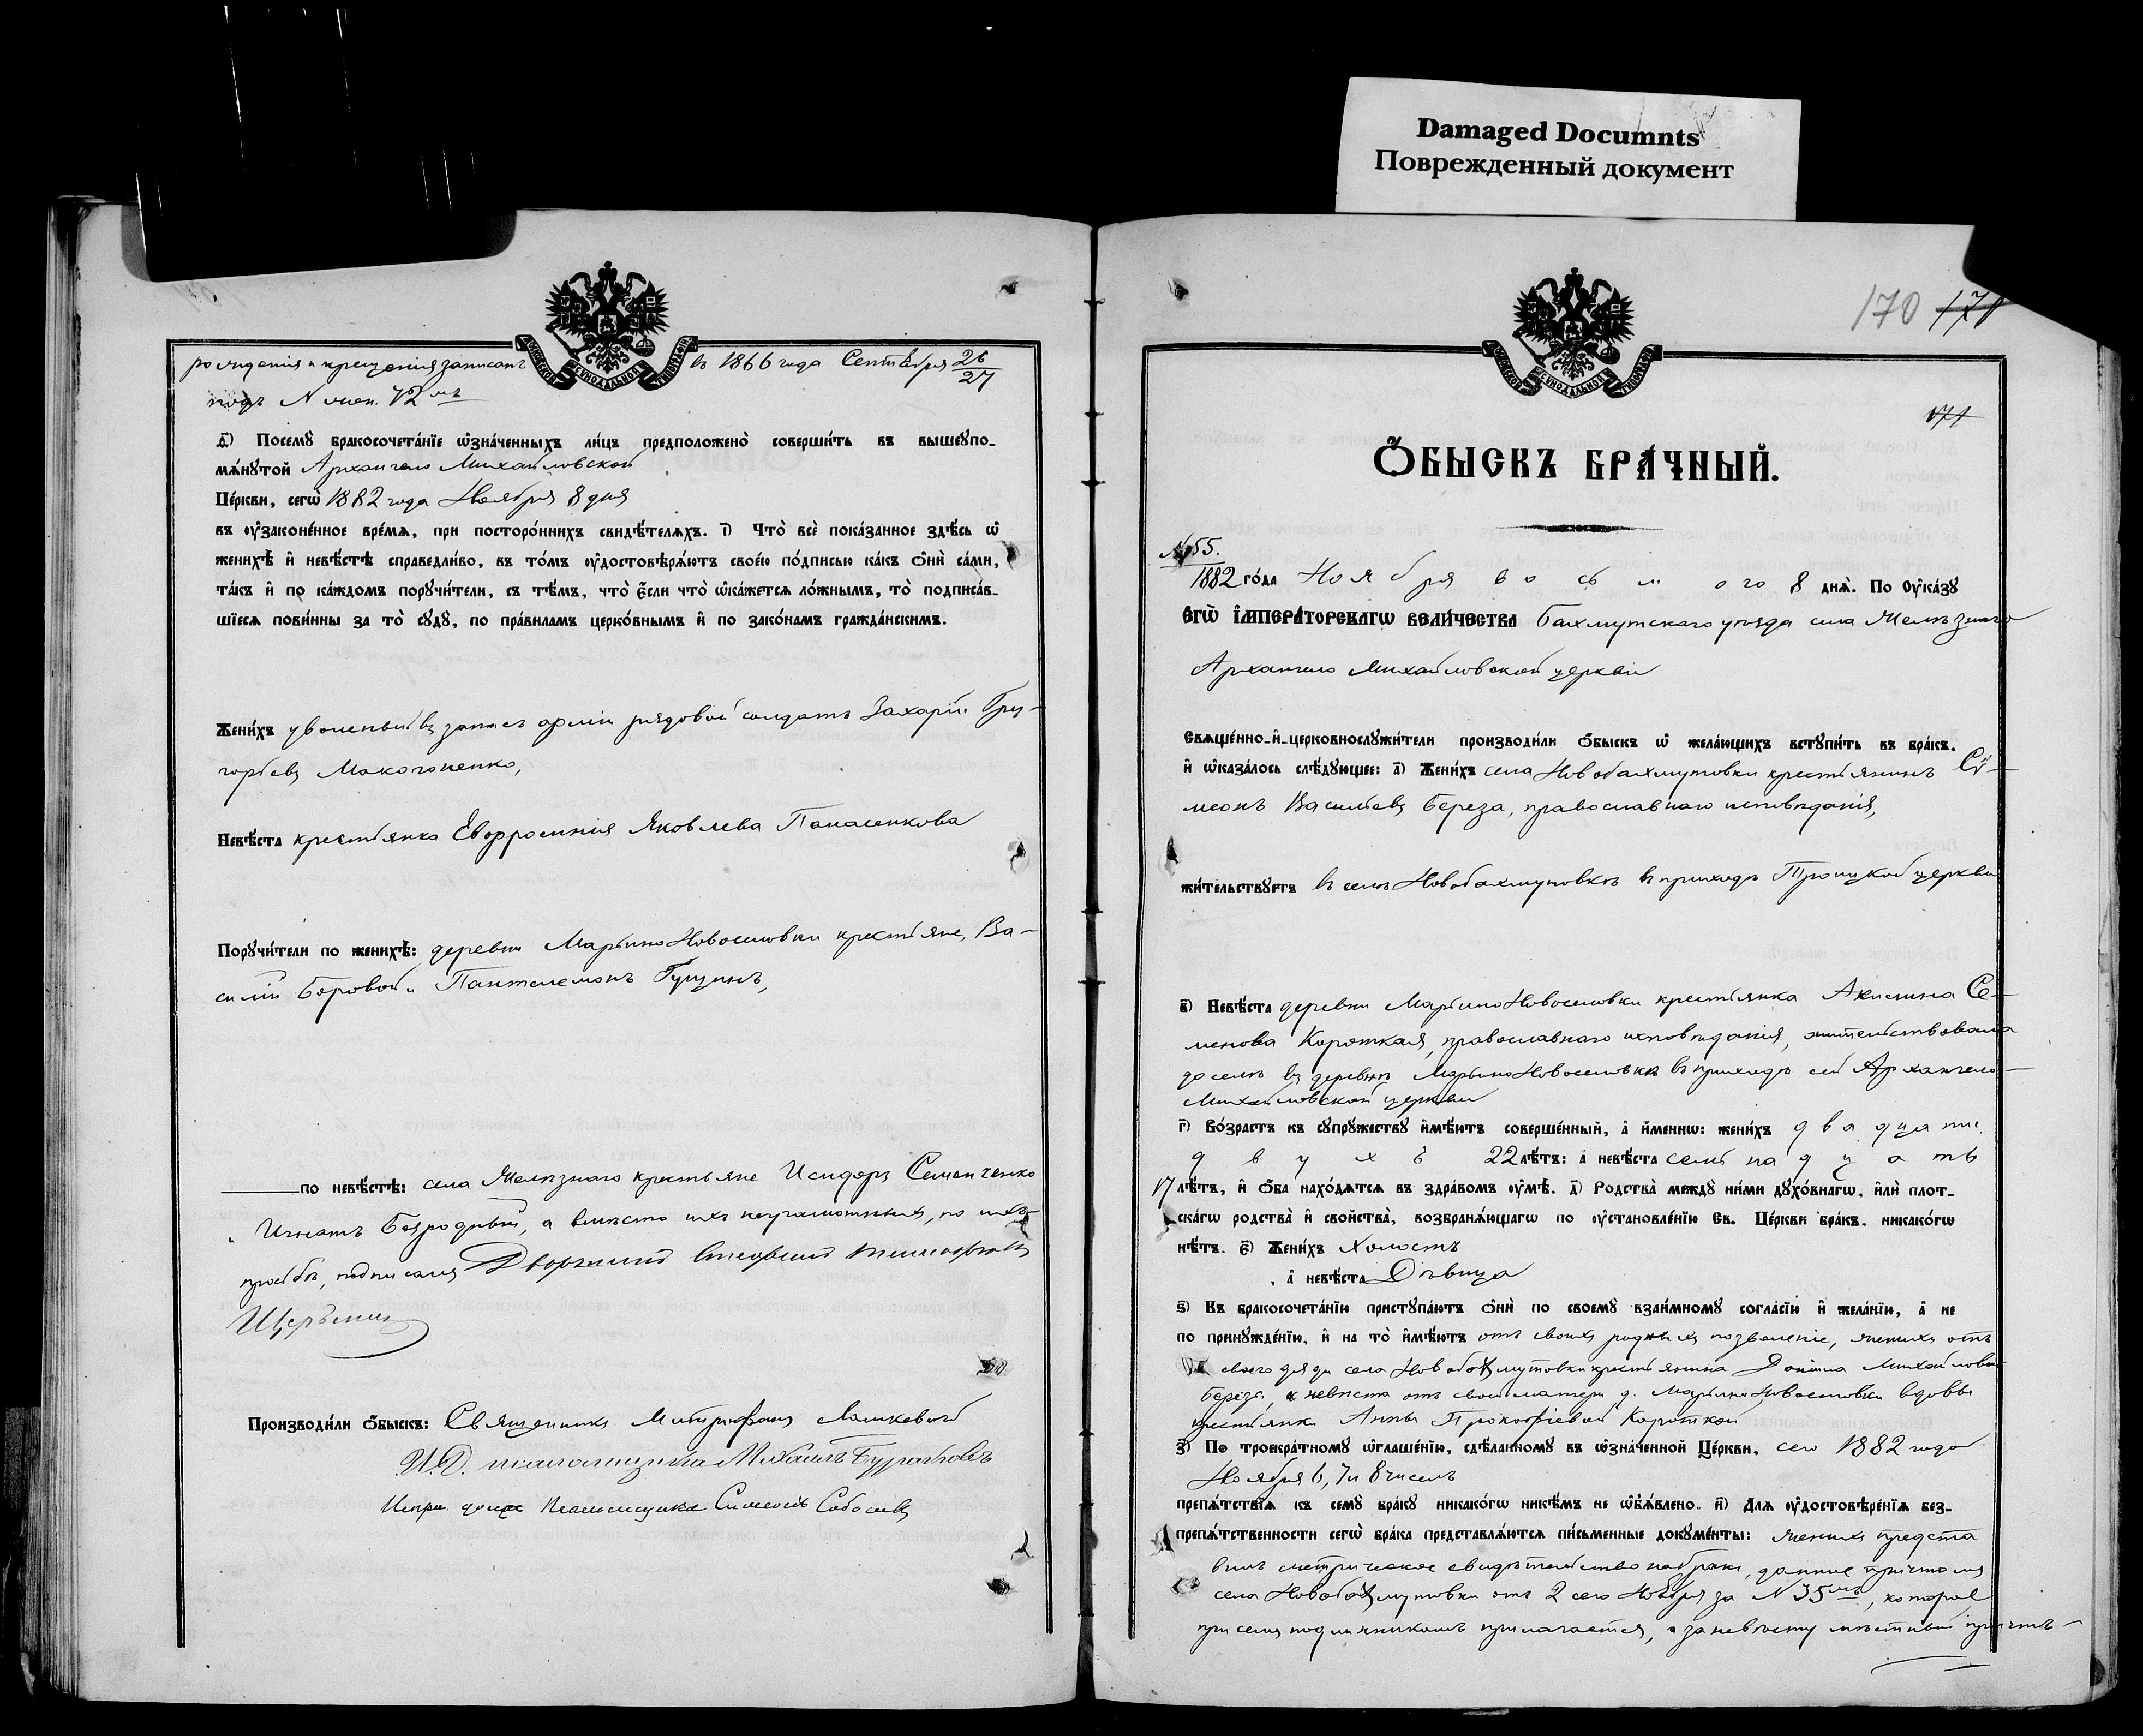 Damaged Documnts
Поврежденный документ
рождения и крещения записанъ въ 1866 года Сентября 26/27
подъ N жен. 72мъ
ѳ҃) Посемꙋ̀ бракосочета́нїе ѡ҆зна́ченныхъ ли́цъ предположено̀ соверши́ть въ вышеꙋпо-
мѧ́нꙋтой Архангело Михайловской
Це́ркви, сегѡ̀ 1882 года Ноября 8 дня
въ ᲂу҆законе́нное вре́мѧ, при посторо́ннихъ свидѣ́телѧхъ. і҃) Что̀ всѐ пока́занное здѣ́сь ѡ҆
женихѣ̀ и҆ невѣ́стѣ справедли́во, въ то́мъ ᲂу҆достовѣрѧ́ютъ свое́ю по́дписью ка́къ ѻ҆нѝ са́ми,
та́къ и҆ по ка́ждомъ порꙋчи́тели, съ тѣ́мъ, что̀ є҆́сли что̀ ѡ҆ка́жетсѧ ло́жнымъ, то̀ подписа́в-
шїесѧ пови́нны за то̀ сꙋдꙋ̀, по пра́виламъ церко́внымъ и҆ по зако́намъ гражда́нскимъ.
Жени́хъ уволеный въ запасъ армiи рядовой солдатъ Захарiй Гри-
горьевъ Макогоненко,
Невѣ́ста крестьянка Евфросинiя Яковлева Панасенкова
Порꙋчи́тели по женихѣ̀: деревни Марьино Новоселовки крестьяне, Ва-
силiй Боровой и Пантелемонъ Гущинъ,
по невѣ́стѣ: села Желѣзнаго крестьяне Исидоръ Семенченко
и Игнатъ Безродный, а вмѣсто ихъ неграмотныхъ, по ихъ
просьбѣ, подписался Дворянинъ
Щербина
Производи́ли ѻ҆́быскъ: Священникъ Митрофанъ
И.Д. псаломщика Михаилъ Бураковъ
Испр. долж Псаломщика Симеонъ Соболевъ
170 171
171
Ѻ҆́БЫСКЪ БРА́ЧНЫЙ.
№ 55.
1882 го́да Ноября восьмого 8 днѧ̀. По Оу҆ка́зꙋ
Є҆ГѠ̀ И҆МПЕРА́ТОРСКАГѠ ВЕЛИ́ЧЕСТВА Бахмутскаго уѣзда села Желѣзнаго
Архангело Михайловской церкви
Свѧще́нно-и҆-церковнослꙋжи́тели производи́ли ѻ҆́быскъ ѡ҆ жела́ющихъ встꙋпи́ть въ бра́къ.
и҆ ѡ҆каза́лось слѣ́дꙋющее: а҃) Жени́хъ села Новобахмутовки крестьянинъ Сѵ-
меонъ Васильевъ Береза, православнаго исповѣданiя,
жи́тельствꙋетъ въ селѣ Новобахмутовкѣ въ приходѣ Троицкой церкви
в҃) Невѣ́ста деревни Марьино Новоселовки крестьянка Акилина Се-
менова Короткая, православнаго исповѣданiя, жительствовала
доселѣ въ деревнѣ Марьино Новоселовкѣ въ приходѣ сей Архангело-
Михайловской церкви
г҃) Во́зрастъ къ сꙋпрꙋ́жествꙋ и҆мѣ́ютъ соверше́нный, а҆ и҆́меннѡ: жени́хъ двадцати
двухъ 22 лѣ́тъ: а҆ невѣ́ста семнадцать
17 лѣ́тъ, и҆ ѻ҆́ба нахо́дѧтсѧ въ здра́вомъ ᲂу҆мѣ̀. д҃) Родства̀ междꙋ̀ ни́ми дꙋхо́внагѡ, и҆лѝ плот-
ска́гѡ родства̀ и҆ сво́йства̀, возбранѧ́ющагѡ по ᲂу҆становле́нїю Св. Це́ркви бра́къ, никако́гѡ
нѣ́тъ. є҃) Жени́хъ Холостъ
, а҆ невѣ́ста Дѣвица
ѕ҃) Къ бракосочета́нїю пристꙋпа́ютъ ѻ҆нѝ по своемꙋ̀ взаи́мномꙋ согла́сїю и҆ жела́нїю, а҆ не
по принꙋжде́нїю, и҆ на то̀ и҆мѣ́ютъ отъ своихъ родныхъ позволенiе, женихъ отъ
своего дяди села Новобахмутовки крестьянина Данiила Михайлова
Береза, а невѣста отъ своей матери д. Марьино Новоселовки вдовы
крестьянки Анны Прокофiевой Короткой
з҃) По троекра́тномꙋ ѡ҆глаше́нїю, сдѣ́ланномꙋ въ ѡ҆зна́ченной Це́ркви, сего 1882 года
Ноября 6, 7 и 8 чиселъ
препѧ́тствїѧ къ семꙋ̀ бра́кꙋ никако́гѡ никѣ́мъ не ѡ҆б̾ѧ́влено. и҃) Длѧ ᲂу҆достовѣре́нїѧ без-
препѧ́тственности сегѡ̀ бра́ка представлѧ́ютсѧ пи́сьменные докꙋме́нты: женихъ предста
вилъ метрическое свидѣтельство на бракъ, данное причтомъ
села Новобахмутовки отъ 2 сего Ноября за N 35мъ, которое
при семъ подлинникомъ прилагается, а за невѣсту мѣстный причтъ-